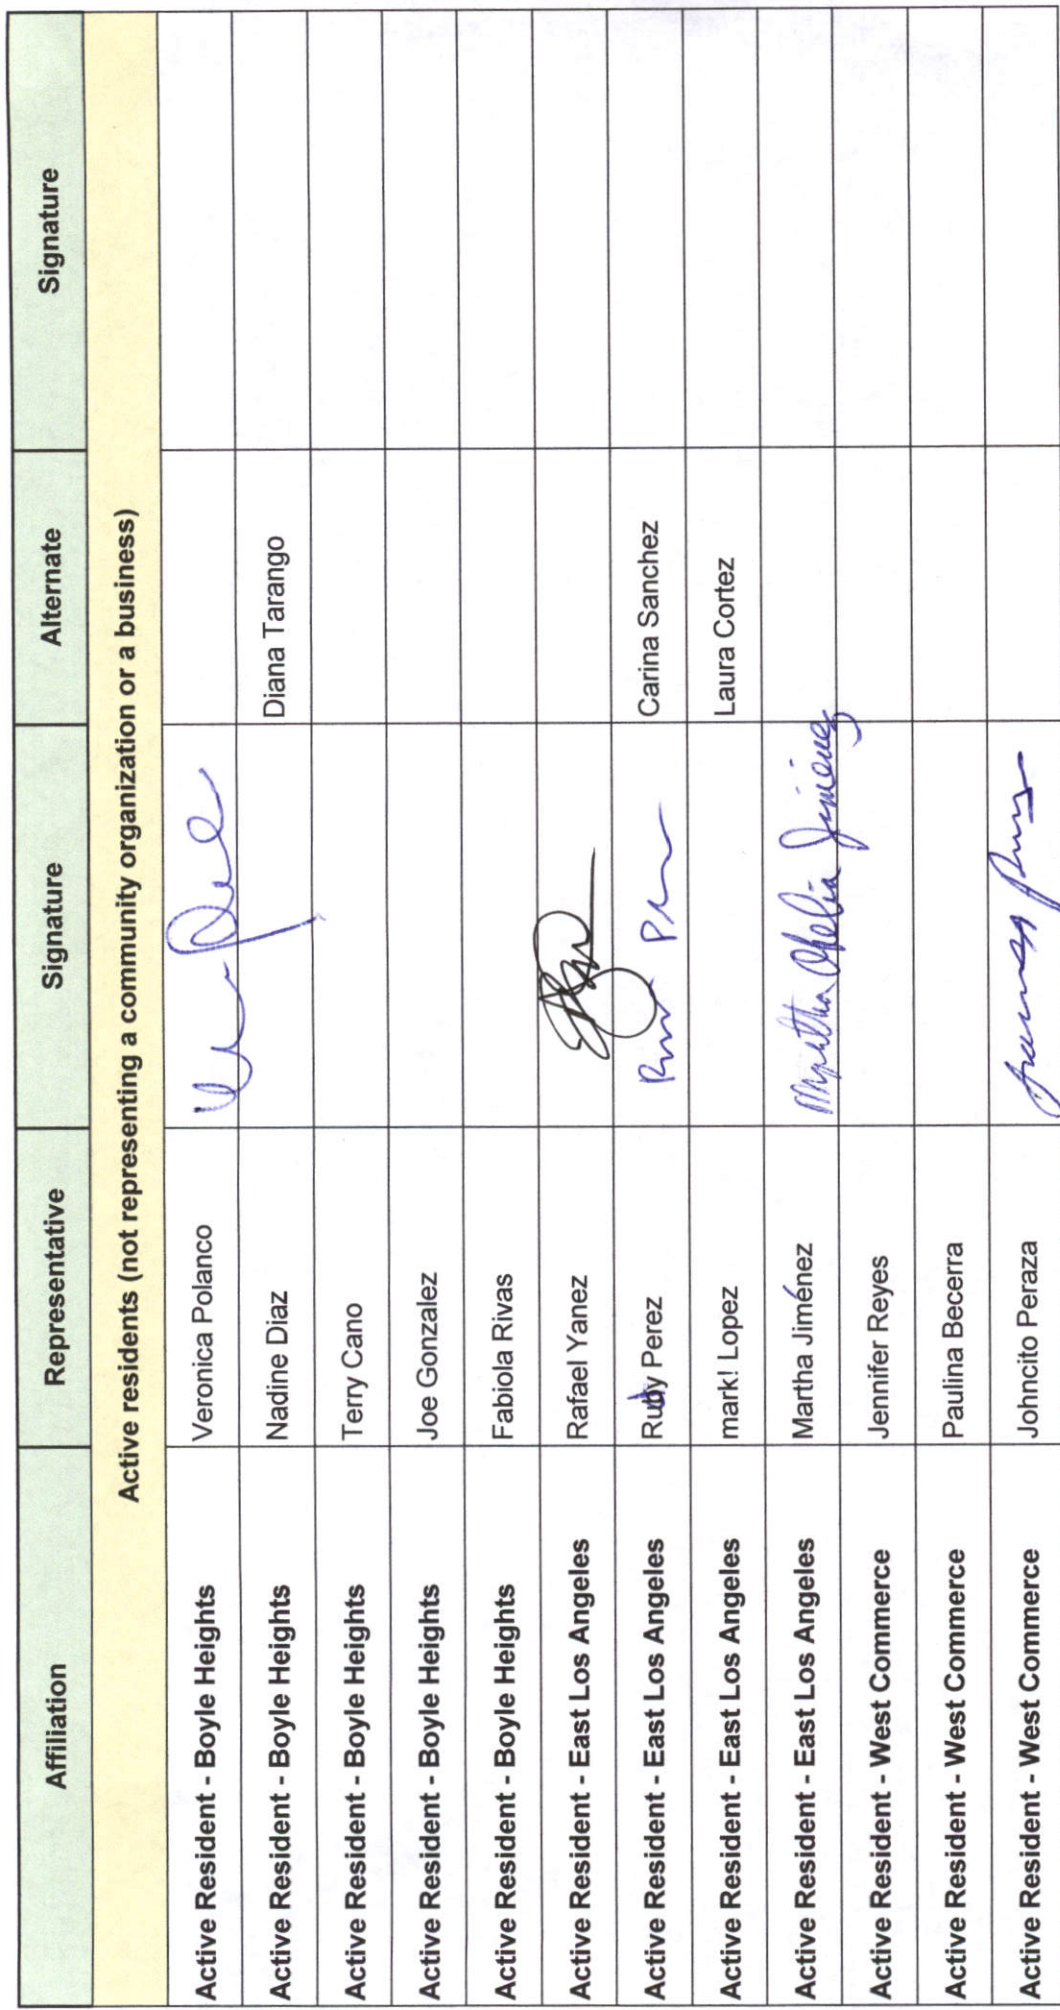 Affiliation Representative Signature Alternate Signature
Active residents (not representing a community organization or a business)
Active Resident - Boyle Heights Veronica Polanco
Active Resident - Boyle Heights Nadine Diaz Diana Tarango
Active Resident - Boyle Heights Terry Cano
Active Resident - Boyle Heights Joe Gonzalez
Active Resident - Boyle Heights Fabiola Rivas
Active Resident - East Los Angeles Rafael Yanez
Active Resident - East Los Angeles Ruby Perez Carina Sanchez
Active Resident - East Los Angeles mark! Lopez Laura Cortez
Active Resident - East Los Angeles Martha Jiménez Martha Ofelia Jimenez
Active Resident - West Commerce Jennifer Reyes
Active Resident - West Commerce Paulina Becerra
Active Resident - West Commerce Johncito Peraza